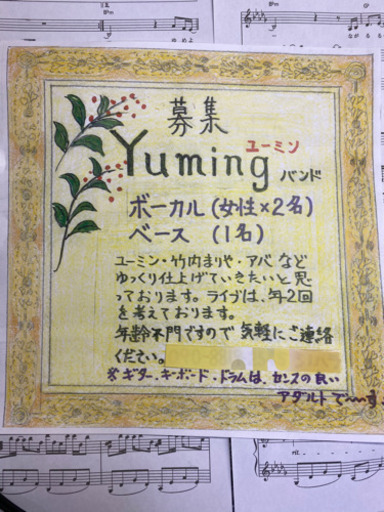 募集
ユーミン
Yuming バンド
ボーカル (女性×2名)
ベース (1名)
ユーミン・竹内まりや・アバ など
ゆっくり仕上げていきたいと思
っております。ライブは、年2回
を考えております。
年齢不問ですので 気軽にご連絡
ください。
※ギター、キーボード・ドラムは、センスの良い
アダルトで〜〜す。